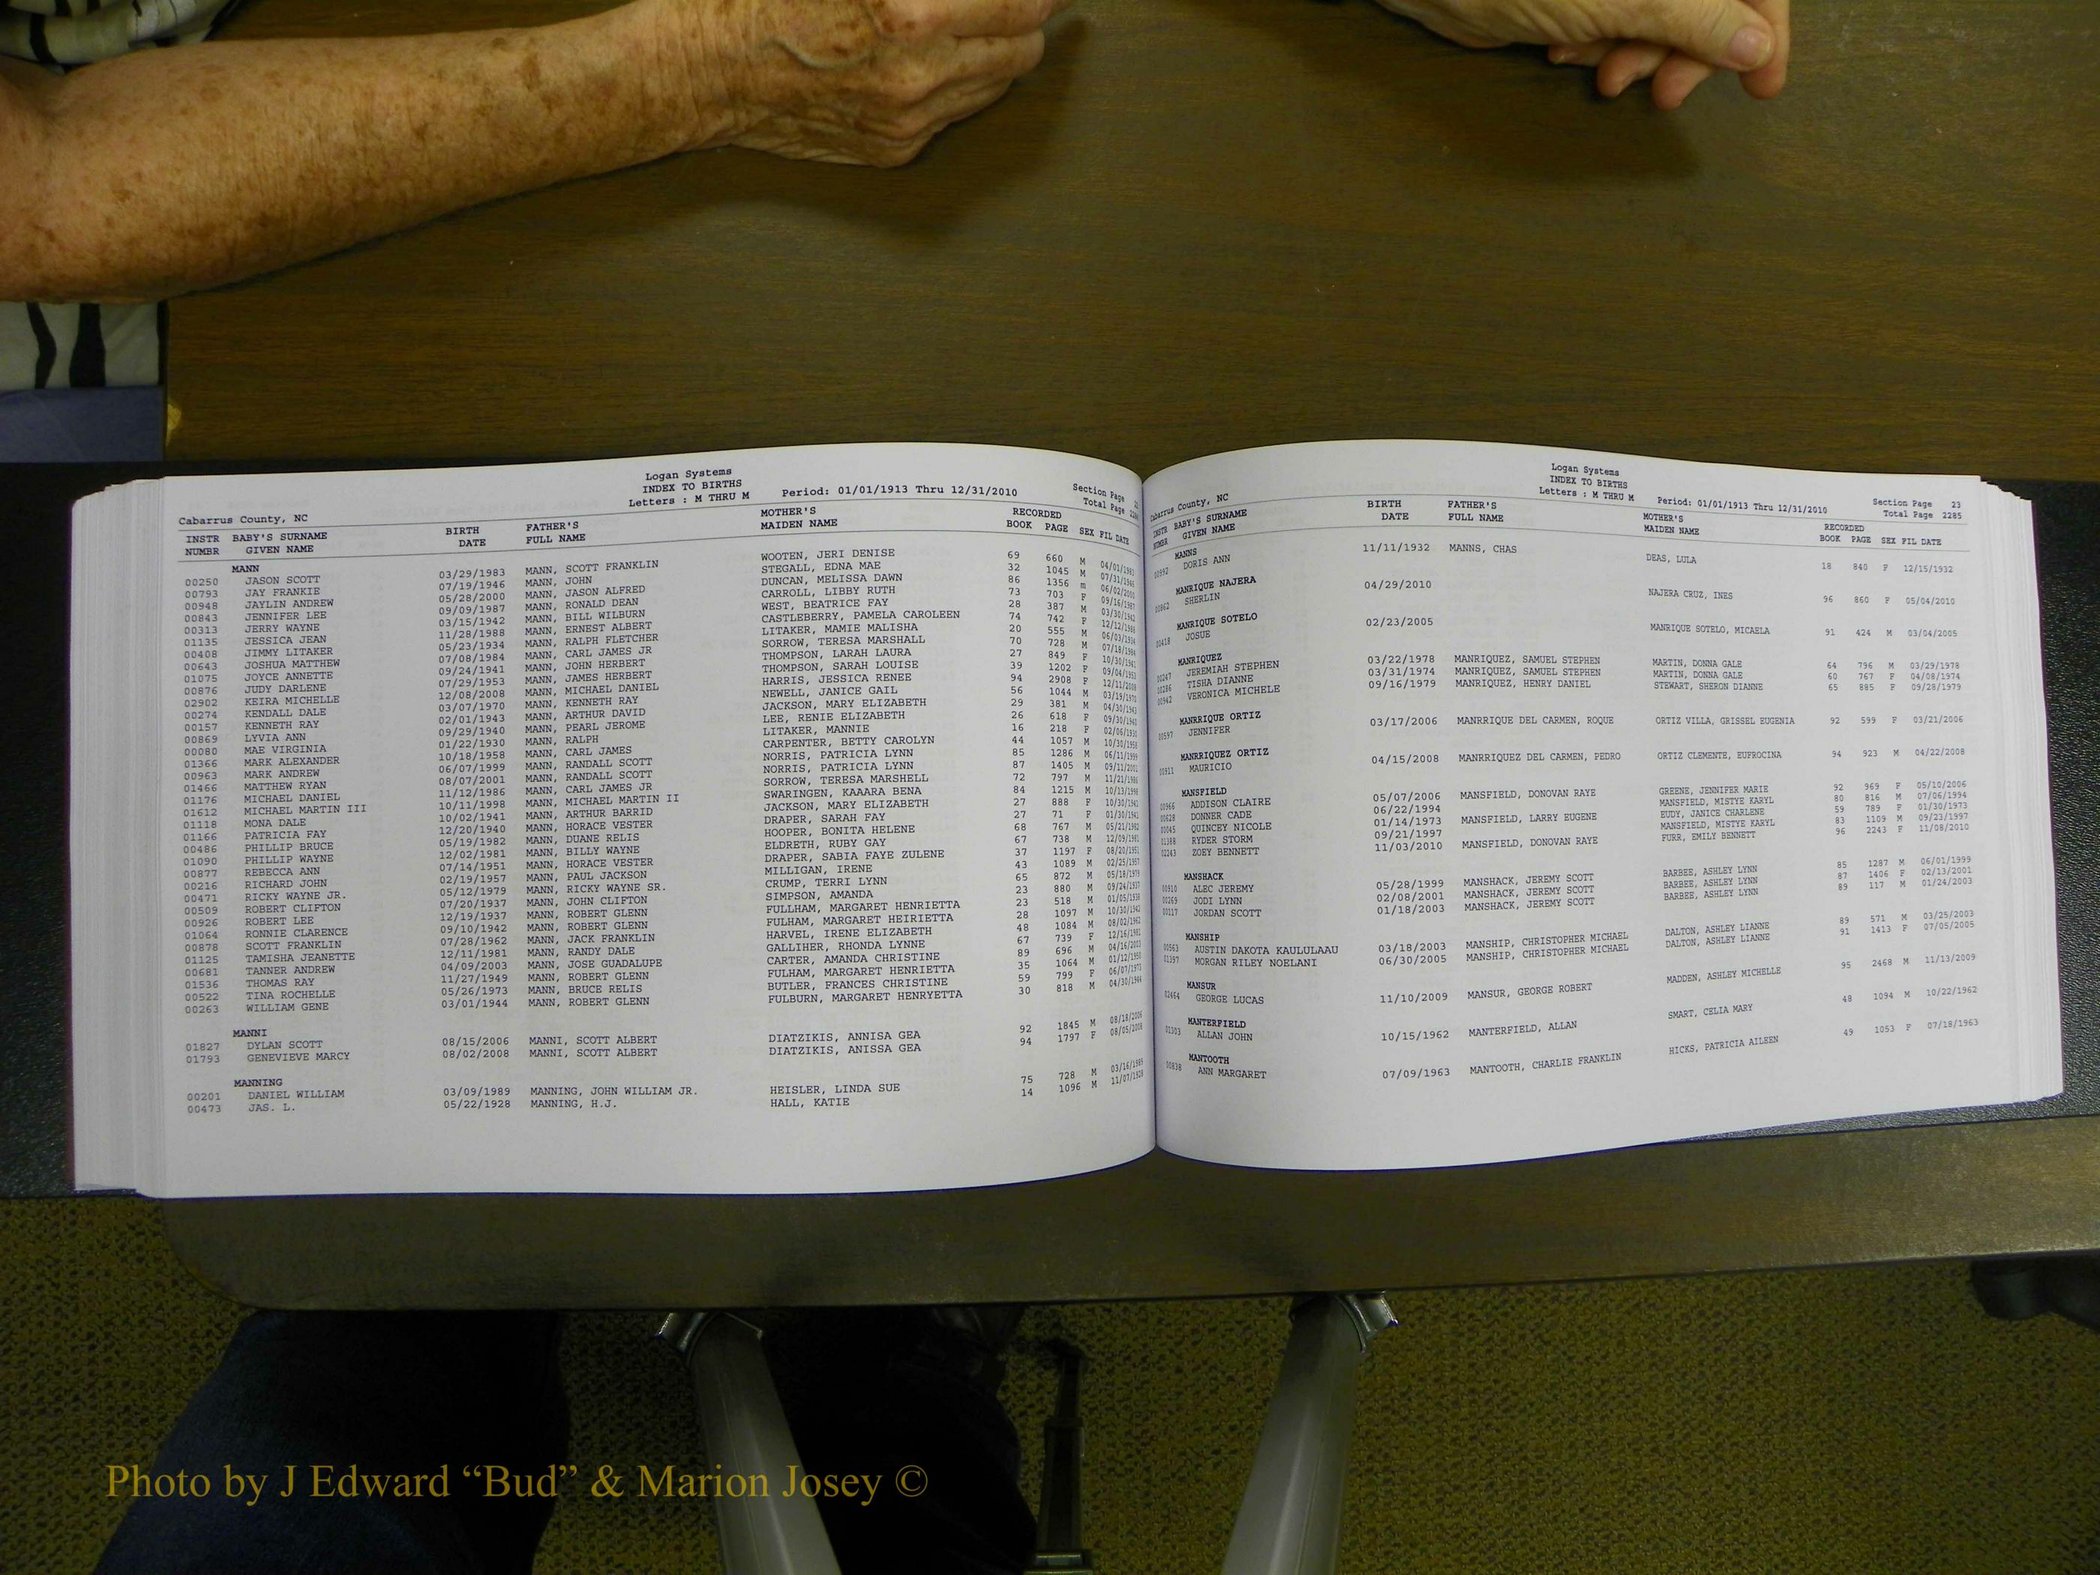 Logan Systems
INDEX TO BIRTHS
Letters : M THRU M Period: 01/01/1913 Thru 12/31/2010
Section Page
Total Page
Cabarrus County, NC
INSTR NUMBR BABY'S SURNAME GIVEN NAME BIRTH DATE FATHER'S FULL NAME MOTHER'S MAIDEN NAME RECORDED BOOK PAGE SEX FIL DATE
MANN
00250 JASON SCOTT 03/29/1983 MANN, SCOTT FRANKLIN WOOTEN, JERI DENISE 69 660 M 04/01/1983
00793 JAY FRANKIE 07/19/1946 MANN, JOHN STEGALL, EDNA MAE 32 1045 M 07/31/1946
00948 JAYLIN ANDREW 05/28/2000 MANN, JASON ALFRED DUNCAN, MELISSA DAWN 86 1356 m 06/02/2000
00843 JENNIFER LEE 09/09/1987 MANN, RONALD DEAN CARROLL, LIBBY RUTH 73 703 F 09/16/1987
00313 JERRY WAYNE 03/15/1942 MANN, BILL WILBURN WEST, BEATRICE FAY 28 387 M 03/30/1942
01135 JESSICA JEAN 11/28/1988 MANN, ERNEST ALBERT CASTLEBERRY, PAMELA CAROLEEN 74 742 F 12/12/1988
00408 JIMMY LITAKER 05/23/1934 MANN, RALPH FLETCHER LITAKER, MAMIE MALISHA 20 555 M 06/03/1934
00643 JOSHUA MATTHEW 07/08/1984 MANN, CARL JAMES JR SORROW, TERESA MARSHALL 70 728 M 07/18/1984
01075 JOYCE ANNETTE 09/24/1941 MANN, JOHN HERBERT THOMPSON, LARAH LAURA 27 849 F 10/30/1941
00876 JUDY DARLENE 07/29/1953 MANN, JAMES HERBERT THOMPSON, SARAH LOUISE 39 1202 F 09/04/1953
02902 KEIRA MICHELLE 12/08/2008 MANN, MICHAEL DANIEL HARRIS, JESSICA RENEE 94 2908 F 12/11/2008
00274 KENDALL DALE 03/07/1970 MANN, KENNETH RAY NEWELL, JANICE GAIL 56 1044 M 03/19/1970
00157 KENNETH RAY 02/01/1943 MANN, ARTHUR DAVID JACKSON, MARY ELIZABETH 29 381 M 04/30/1943
00869 LYVIA ANN 09/29/1940 MANN, PEARL JEROME LEE, RENIE ELIZABETH 26 618 F 09/30/1940
00080 MAE VIRGINIA 01/22/1930 MANN, RALPH LITAKER, MANNIE 16 218 F 02/06/1930
01366 MARK ALEXANDER 10/18/1958 MANN, CARL JAMES CARPENTER, BETTY CAROLYN 44 1057 M 10/30/1958
00963 MARK ANDREW 06/07/1999 MANN, RANDALL SCOTT NORRIS, PATRICIA LYNN 85 1286 M 06/11/1999
01466 MATTHEW RYAN 08/07/2001 MANN, RANDALL SCOTT NORRIS, PATRICIA LYNN 87 1405 M 09/11/2001
01176 MICHAEL DANIEL 11/12/1986 MANN, CARL JAMES JR SORROW, TERESA MARSHELL 72 797 M 11/21/1986
01612 MICHAEL MARTIN III 10/11/1998 MANN, MICHAEL MARTIN II SWARINGEN, KAAARA BENA 84 1215 M 10/13/1998
01118 MONA DALE 10/02/1941 MANN, ARTHUR BARRID JACKSON, MARY ELIZABETH 27 888 F 10/30/1941
01166 PATRICIA FAY 12/20/1940 MANN, HORACE VESTER DRAPER, SARAH FAY 27 71 F 01/30/1941
00486 PHILLIP BRUCE 05/19/1982 MANN, DUANE RELIS HOOPER, BONITA HELENE 68 767 M 05/21/1982
01090 PHILLIP WAYNE 12/02/1981 MANN, BILLY WAYNE ELDRETH, RUBY GAY 67 738 M 12/09/1981
00877 REBECCA ANN 07/14/1951 MANN, HORACE VESTER DRAPER, SABIA FAYE ZULENE 37 1197 F 08/20/1951
00216 RICHARD JOHN 02/19/1957 MANN, PAUL JACKSON MILLIGAN, IRENE 43 1089 M 02/25/1957
00471 RICKY WAYNE JR. 05/12/1979 MANN, RICKY WAYNE SR. CRUMP, TERRI LYNN 65 872 M 05/18/1979
00509 ROBERT CLIFTON 07/20/1937 MANN, JOHN CLIFTON SIMPSON, AMANDA 23 880 M 09/24/1937
00926 ROBERT LEE 12/19/1937 MANN, ROBERT GLENN FULLHAM, MARGARET HENRIETTA 23 518 M 01/05/1938
01064 RONNIE CLARENCE 09/10/1942 MANN, ROBERT GLENN FULHAM, MARGARET HEIRIETTA 28 1097 M 10/30/1942
00878 SCOTT FRANKLIN 07/28/1962 MANN, JACK FRANKLIN HARVEL, IRENE ELIZABETH 48 1084 M 08/02/1962
01125 TAMISHA JEANETTE 12/11/1981 MANN, RANDY DALE GALLIHER, RHONDA LYNNE 67 739 F 12/16/1981
00681 TANNER ANDREW 04/09/2003 MANN, JOSE GUADALUPE CARTER, AMANDA CHRISTINE 89 696 M 04/16/2003
01536 THOMAS RAY 11/27/1949 MANN, ROBERT GLENN FULHAM, MARGARET HENRIETTA 35 1064 M 01/12/1950
00522 TINA ROCHELLE 05/26/1973 MANN, BRUCE RELIS BUTLER, FRANCES CHRISTINE 59 799 F 06/07/1973
00263 WILLIAM GENE 03/01/1944 MANN, ROBERT GLENN FULBURN, MARGARET HENRYETTA 30 818 M 04/30/1944
MANNI
01827 DYLAN SCOTT 08/15/2006 MANNI, SCOTT ALBERT DIATZIKIS, ANNISA GEA 92 1845 M 08/18/2006
01793 GENEVIEVE MARCY 08/02/2008 MANNI, SCOTT ALBERT DIATZIKIS, ANISSA GEA 94 1797 F 08/05/2008
MANNING
00201 DANIEL WILLIAM 03/09/1989 MANNING, JOHN WILLIAM JR. HEISLER, LINDA SUE 75 728 M 03/16/1989
00473 JAS. L. 05/22/1928 MANNING, H.J. HALL, KATIE 14 1096 M 11/07/1928
Logan Systems
INDEX TO BIRTHS
Letters : M THRU M Period: 01/01/1913 Thru 12/31/2010
Section Page 23
Total Page 2285
Cabarrus County, NC
INSTR NUMBR BABY'S SURNAME GIVEN NAME BIRTH DATE FATHER'S FULL NAME MOTHER'S MAIDEN NAME RECORDED BOOK PAGE SEX FIL DATE
MANNS
00992 DORIS ANN 11/11/1932 MANNS, CHAS DEAS, LULA 18 840 F 12/15/1932
MANRIQUE NAJERA
00862 SHERLIN 04/29/2010 NAJERA CRUZ, INES 96 860 F 05/04/2010
MANRIQUE SOTELO
00418 JOSUE 02/23/2005 MANRIQUE SOTELO, MICAELA 91 424 M 03/04/2005
MANRIQUEZ
00247 JEREMIAH STEPHEN 03/22/1978 MANRIQUEZ, SAMUEL STEPHEN MARTIN, DONNA GALE 64 796 M 03/29/1978
00286 TISHA DIANNE 03/31/1974 MANRIQUEZ, SAMUEL STEPHEN MARTIN, DONNA GALE 60 767 F 04/08/1974
00942 VERONICA MICHELE 09/16/1979 MANRIQUEZ, HENRY DANIEL STEWART, SHERON DIANNE 65 885 F 09/28/1979
MANRRIQUE ORTIZ
00597 JENNIFER 03/17/2006 MANRRIQUE DEL CARMEN, ROQUE ORTIZ VILLA, GRISSEL EUGENIA 92 599 F 03/21/2006
MANRRIQUEZ ORTIZ
00911 MAURICIO 04/15/2008 MANRRIQUEZ DEL CARMEN, PEDRO ORTIZ CLEMENTE, EUFROCINA 94 923 M 04/22/2008
MANSFIELD
00966 ADDISON CLAIRE 05/07/2006 MANSFIELD, DONOVAN RAYE GREENE, JENNIFER MARIE 92 969 F 05/10/2006
00628 DONNER CADE 06/22/1994 MANSFIELD, MISTYE KARYL 80 816 M 07/06/1994
00045 QUINCEY NICOLE 01/14/1973 MANSFIELD, LARRY EUGENE EUDY, JANICE CHARLENE 59 789 F 01/30/1973
01388 RYDER STORM 09/21/1997 MANSFIELD, MISTYE KARYL 83 1109 M 09/23/1997
02243 ZOEY BENNETT 11/03/2010 MANSFIELD, DONOVAN RAYE FURR, EMILY BENNETT 96 2243 F 11/08/2010
MANSHACK
00910 ALEC JEREMY 05/28/1999 MANSHACK, JEREMY SCOTT BARBEE, ASHLEY LYNN 85 1287 M 06/01/1999
00269 JODI LYNN 02/08/2001 MANSHACK, JEREMY SCOTT BARBEE, ASHLEY LYNN 87 1406 F 02/13/2001
00117 JORDAN SCOTT 01/18/2003 MANSHACK, JEREMY SCOTT BARBEE, ASHLEY LYNN 89 117 M 01/24/2003
MANSHIP
00563 AUSTIN DAKOTA KAULULAAU 03/18/2003 MANSHIP, CHRISTOPHER MICHAEL DALTON, ASHLEY LIANNE 89 571 M 03/25/2003
01397 MORGAN RILEY NOELANI 06/30/2005 MANSHIP, CHRISTOPHER MICHAEL DALTON, ASHLEY LIANNE 91 1413 F 07/05/2005
MANSUR
02464 GEORGE LUCAS 11/10/2009 MANSUR, GEORGE ROBERT MADDEN, ASHLEY MICHELLE 95 2468 M 11/13/2009
MANTERFIELD
01303 ALLAN JOHN 10/15/1962 MANTERFIELD, ALLAN SMART, CELIA MARY 48 1094 M 10/22/1962
MANTOOTH
00838 ANN MARGARET 07/09/1963 MANTOOTH, CHARLIE FRANKLIN HICKS, PATRICIA AILEEN 49 1053 F 07/18/1963
Photo by J Edward “Bud” & Marion Josey ©